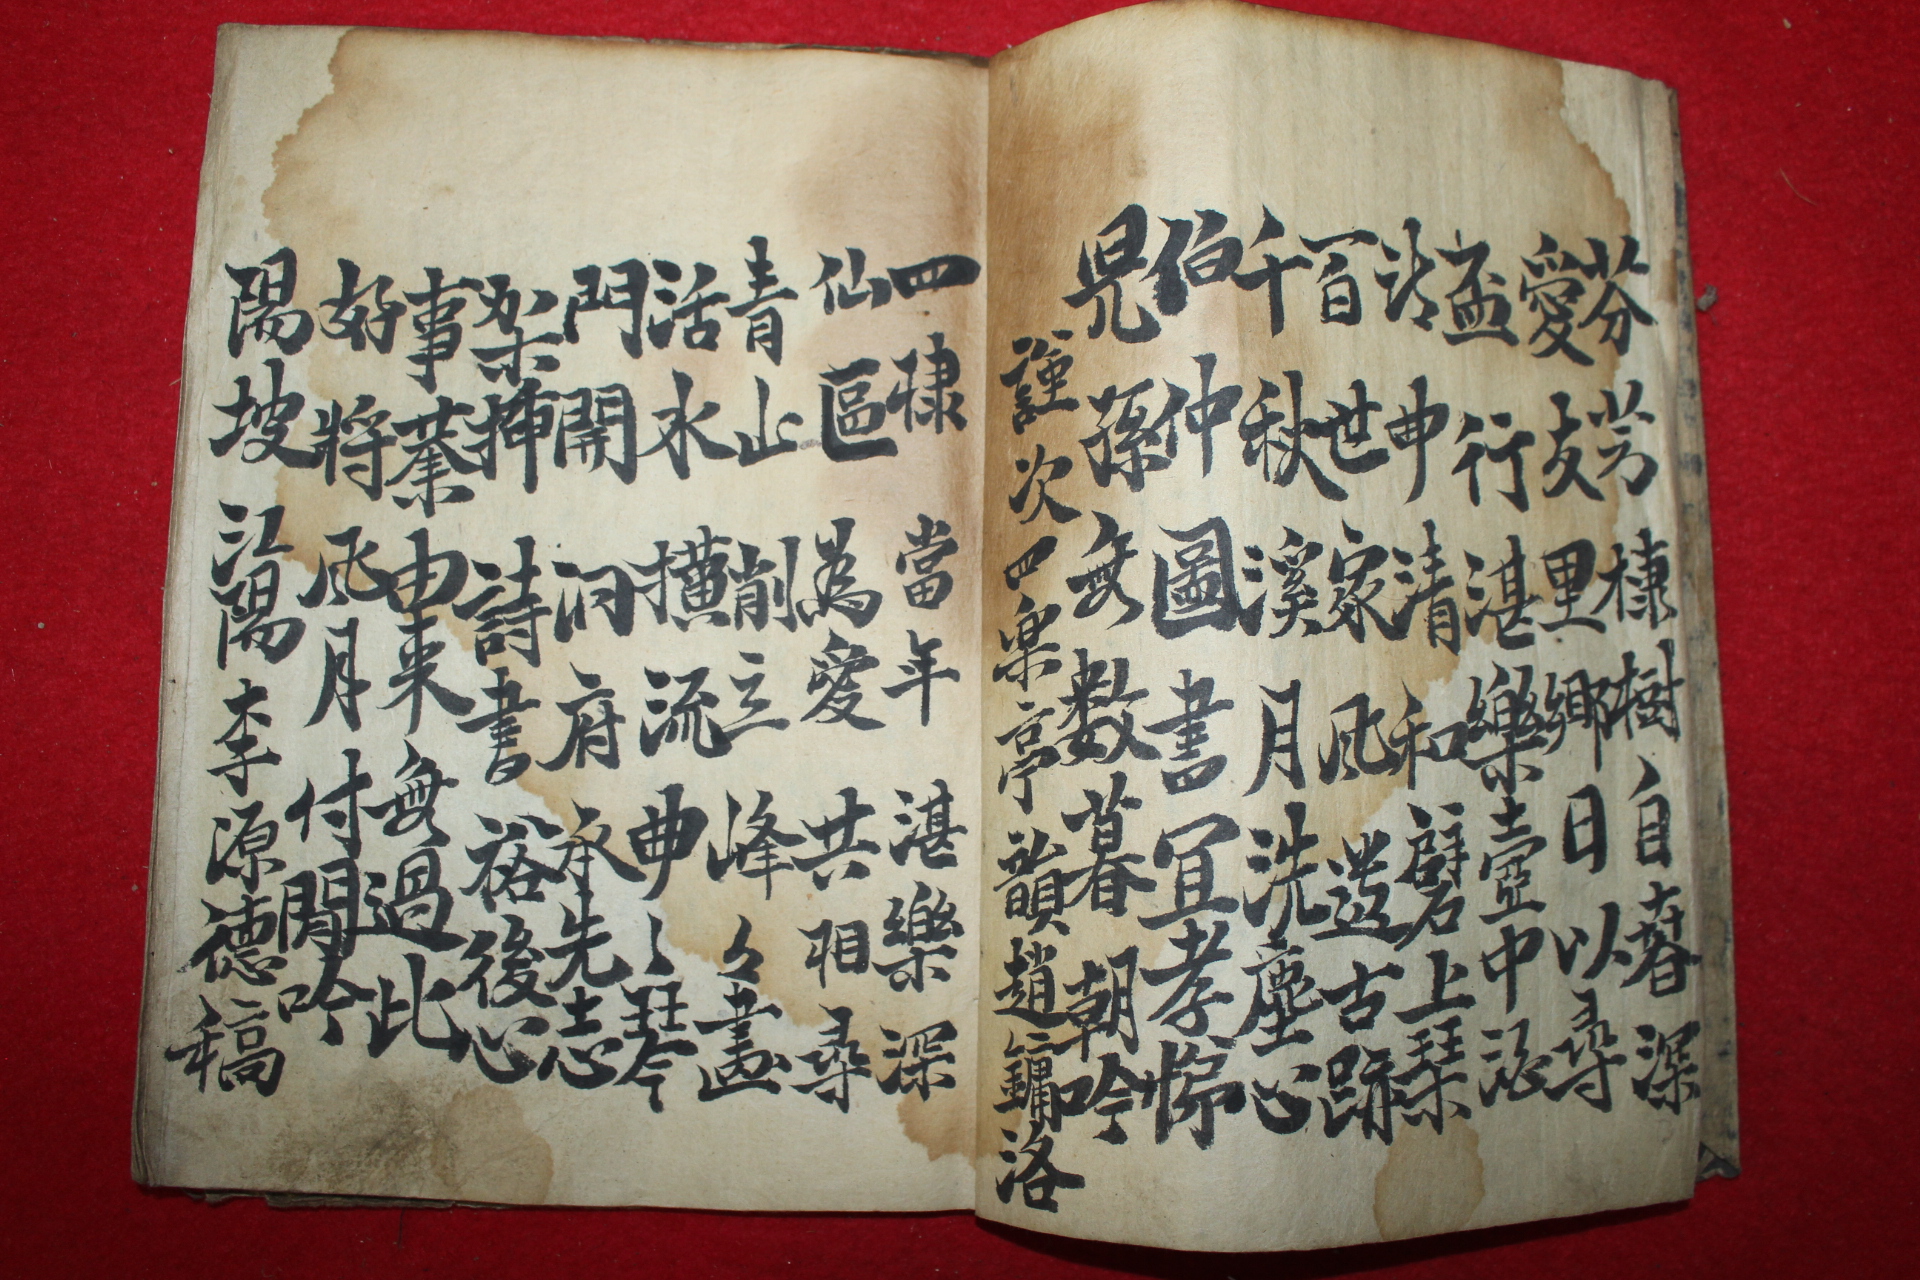 芬芳棣樹自春深
愛友里鄉日以尋
孟行湛樂壺中酒
申清和上琹
百世家風古跡
千秋溪月洗塵心
伯仲圖書宜孝悌
児孫無数暮朝吟
謹次四楽亭韻趙鏞洛
四棣當年湛樂深
仙區為愛共相尋
青山削立峰々畫
活水横流曲々琴
門開洞府承先志
架揷詩書裕後心
事業由来無過此
好將風月付閒吟
陽坡江陽李源德稿